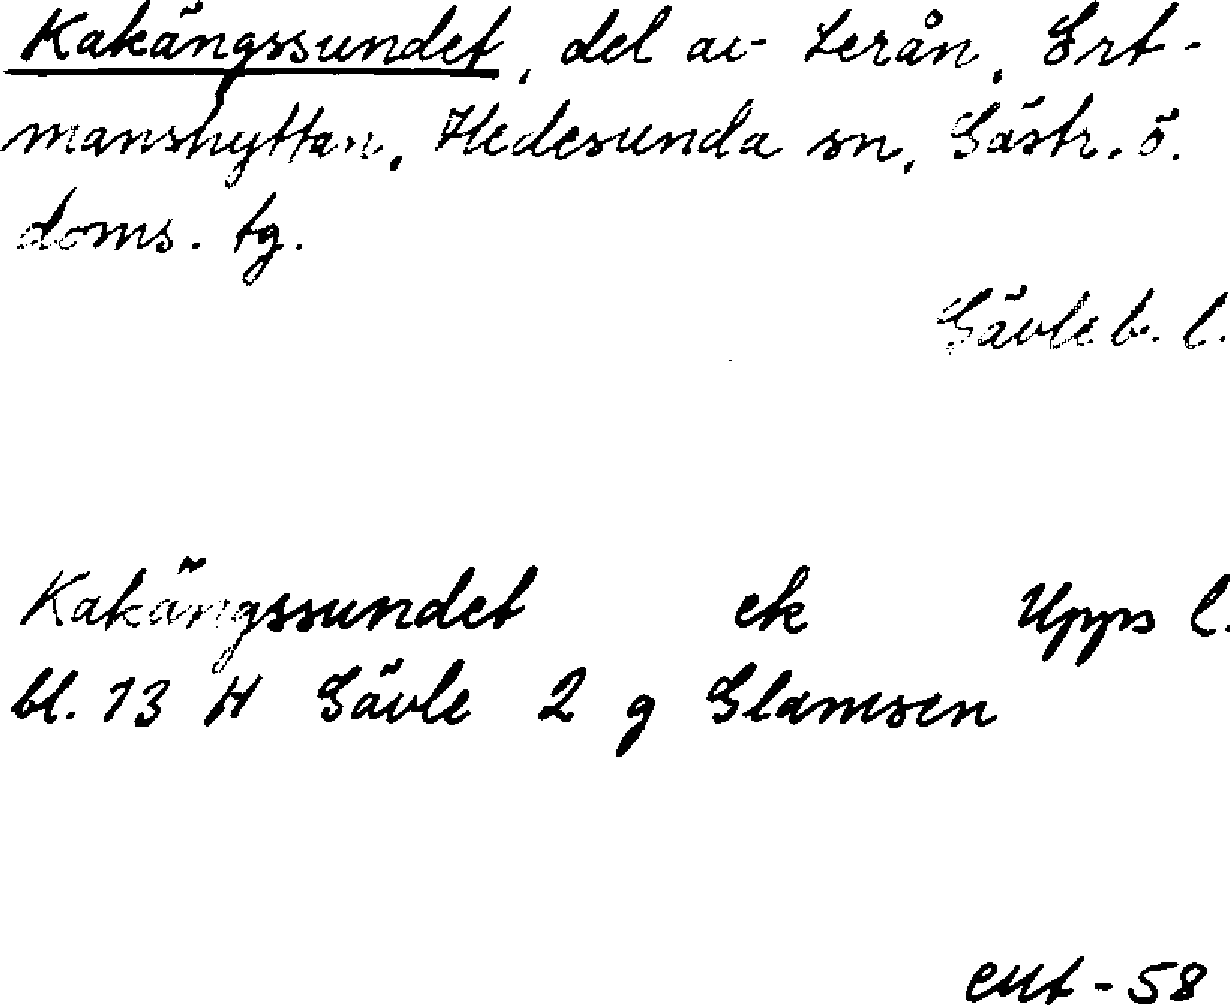 Kakängssundet, del av Lerån, Ert-
manshyttan, Hedesunda sn, Gästr. ö.
doms. tg.
Gävleb. l.
Kakängssundet ek Upps l.
bl. 13 H Gävle 2 g Glamsen
-58